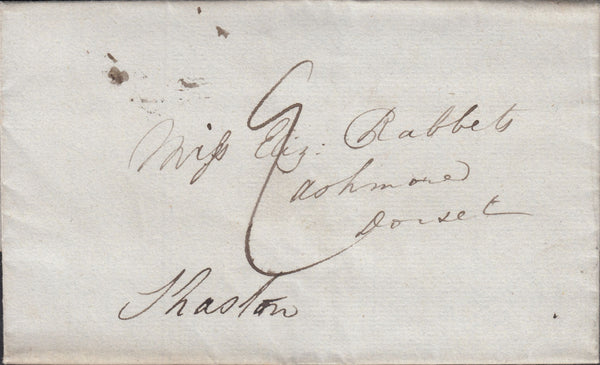 Miss Eliz: Rabbets
Ashmore
Dorset
Shaston